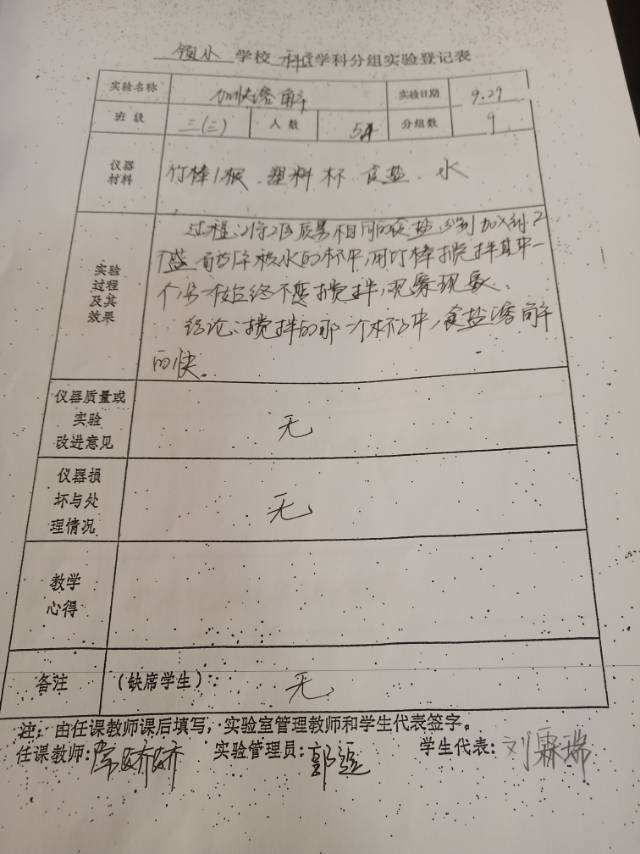 学校 科学学科分组实验登记表
实验名称 加快溶解 实验日期 9.29
班级 三(二) 人数 54 分组数 9
仪器
材料
竹棒1根.塑料杯 食盐.水
实验
过程
及其
效果
过程:将2份质量相同的食盐分别加入到2
个盛有的杯中,用竹棒搅拌其中一
个,另一始终不要搅拌,观察现象。
结论:搅拌的那一个杯子中,食盐溶解
的快。
仪器质量或
实验
改进意见
无
仪器损
坏与处
理情况
无
教学
心得
备注 (缺席学生): 无
注:由任课教师课后填写,实验室管理教师和学生代表签字。
任课教师: 实验管理员: 学生代表:刘霖瑞